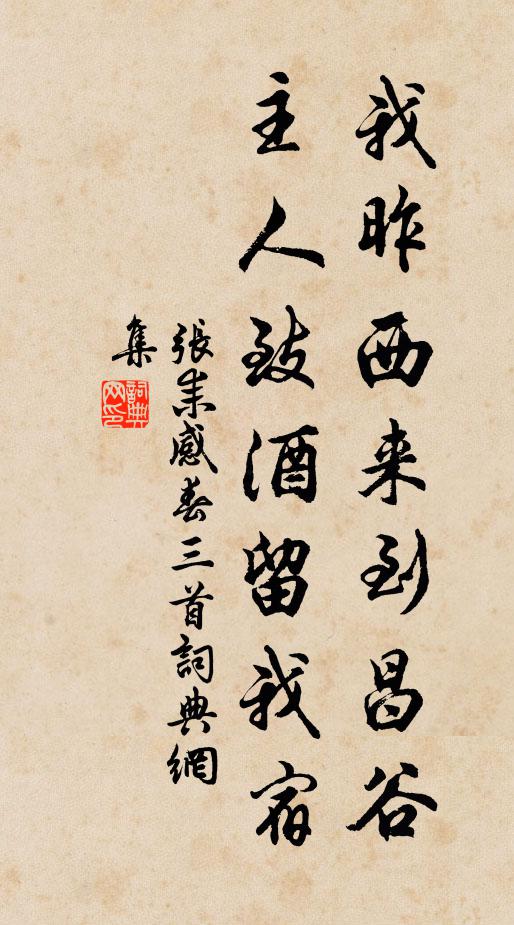 我昨西来到昌谷
主人致酒留我宿
張耒感春三首詞典網
集
詞典
网印